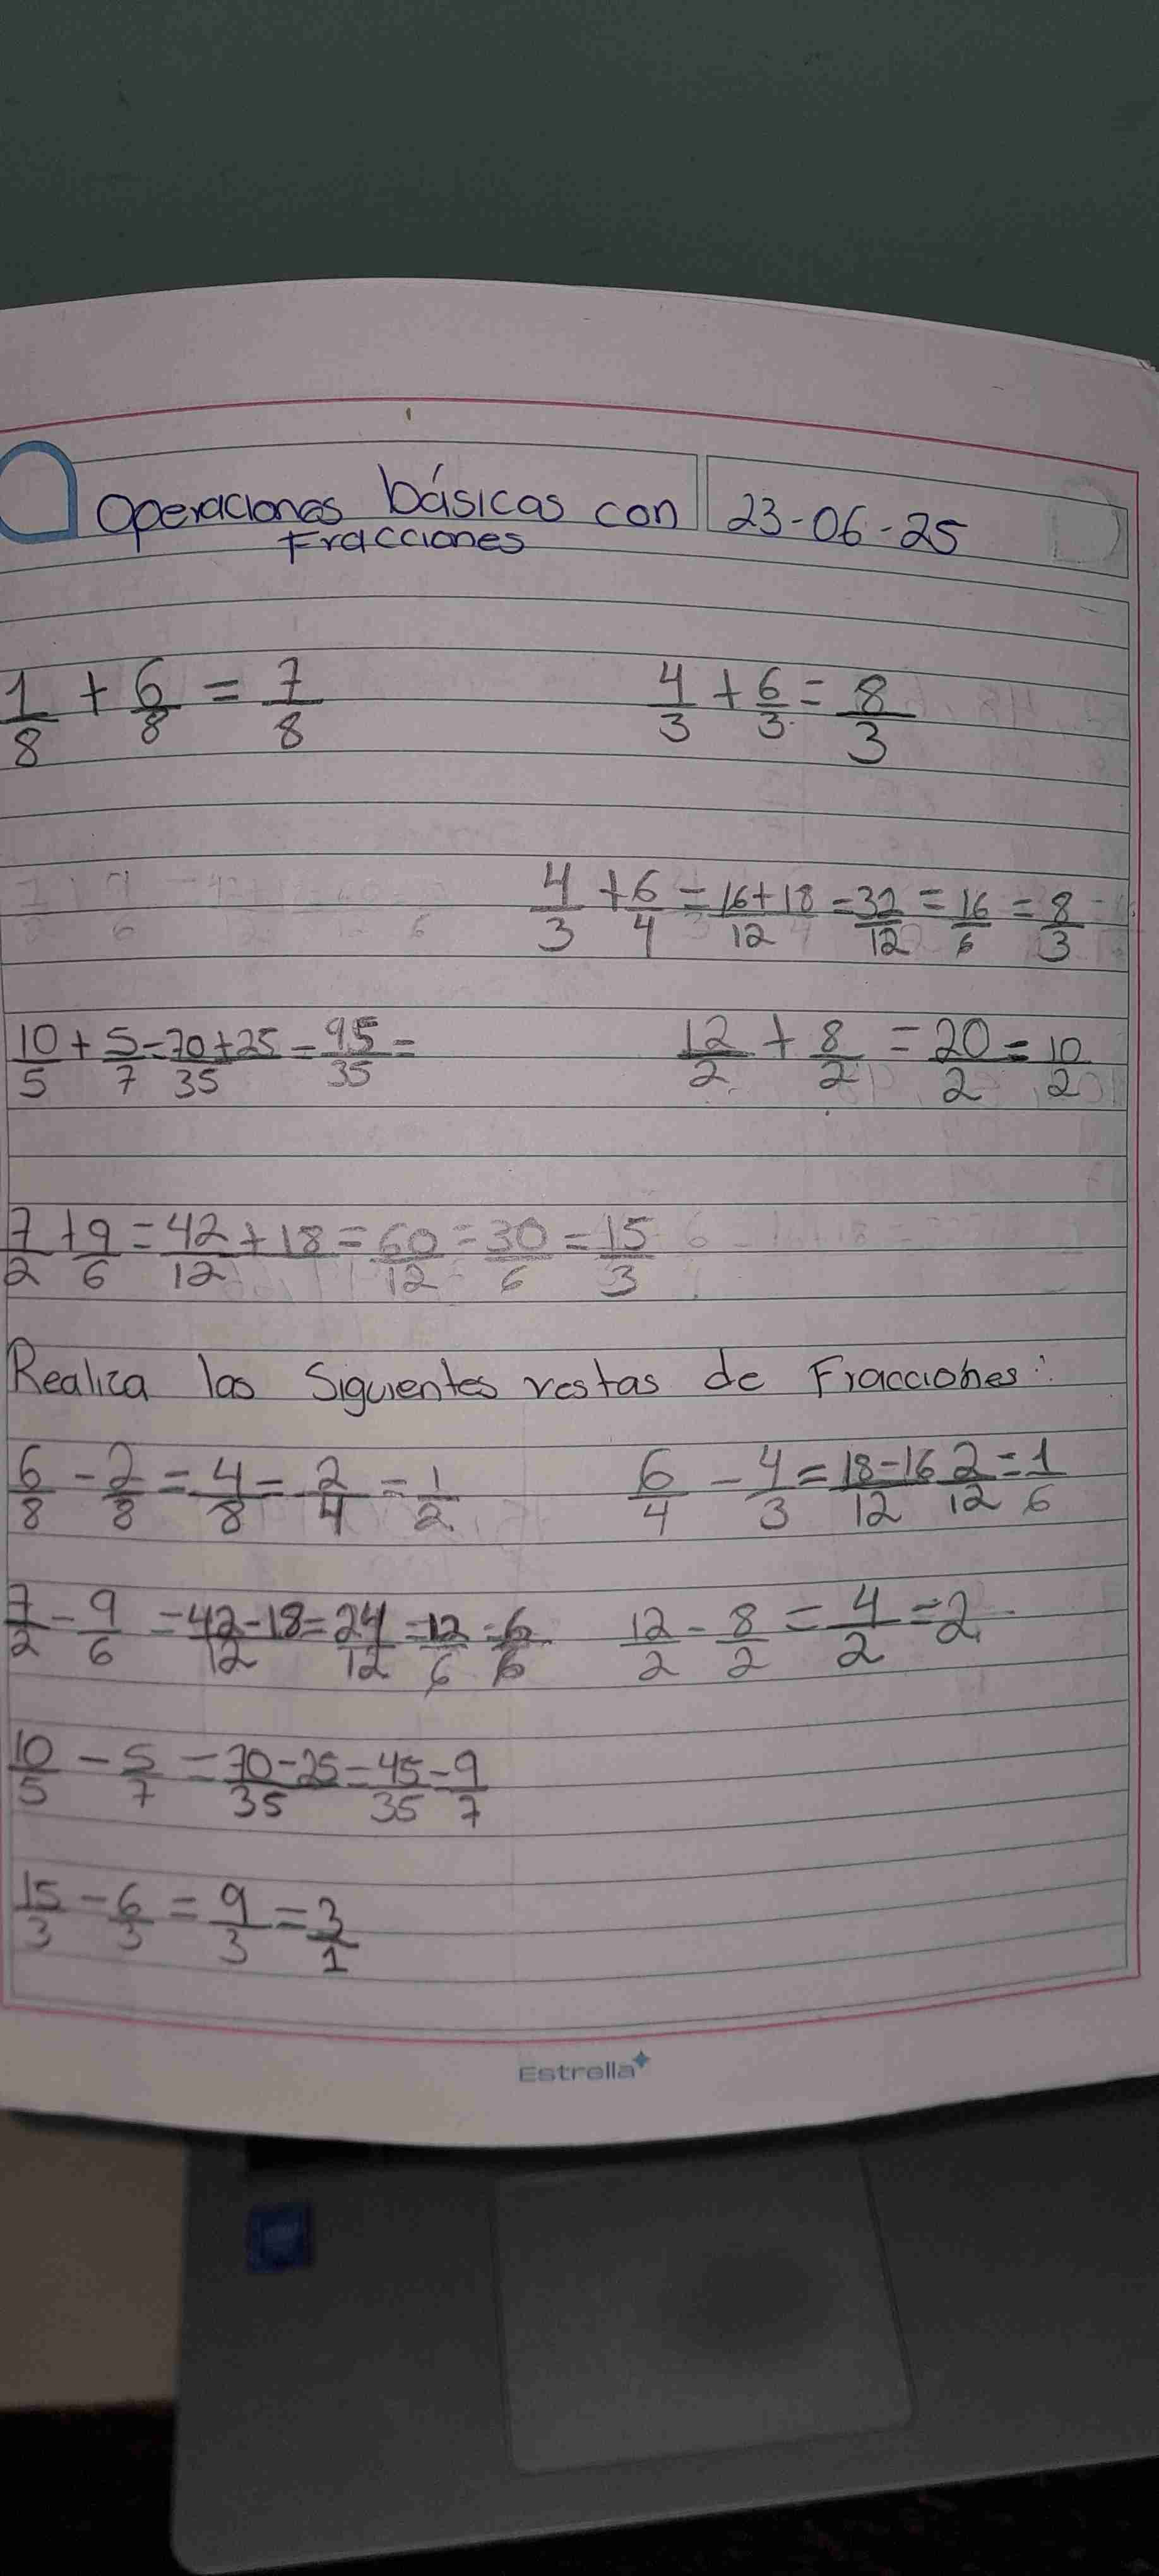 Operaciones básicas con
Fracciones
23-06-25
1/8 + 6/8 = 7/8
4/3 + 6/3 = 8/3
4/3 + 6/4 = 16+18/12 = 32/12 = 16/6 = 8/3
10/5 + 5/7 = 70+25/35 = 95/35 =
12/2 + 8/2 = 20/2 = 10/2
7/2 + 9/6 = 42+18/12 = 60/12 = 30/6 = 15/3
Realiza las Siguientes restas de Fracciones:
6/8 - 2/8 = 4/8 = 2/4 = 1/2
6/4 - 4/3 = 18-16/12 2/12 = 1/6
7/2 - 9/6 = 42-18/12 = 24/12 = 12/6 = 6/6
12/2 - 8/2 = 4/2 = 2
10/5 - 5/7 = 70-25/35 = 45/35 - 9/7
15/3 - 6/3 = 9/3 = 3/1
Estrella